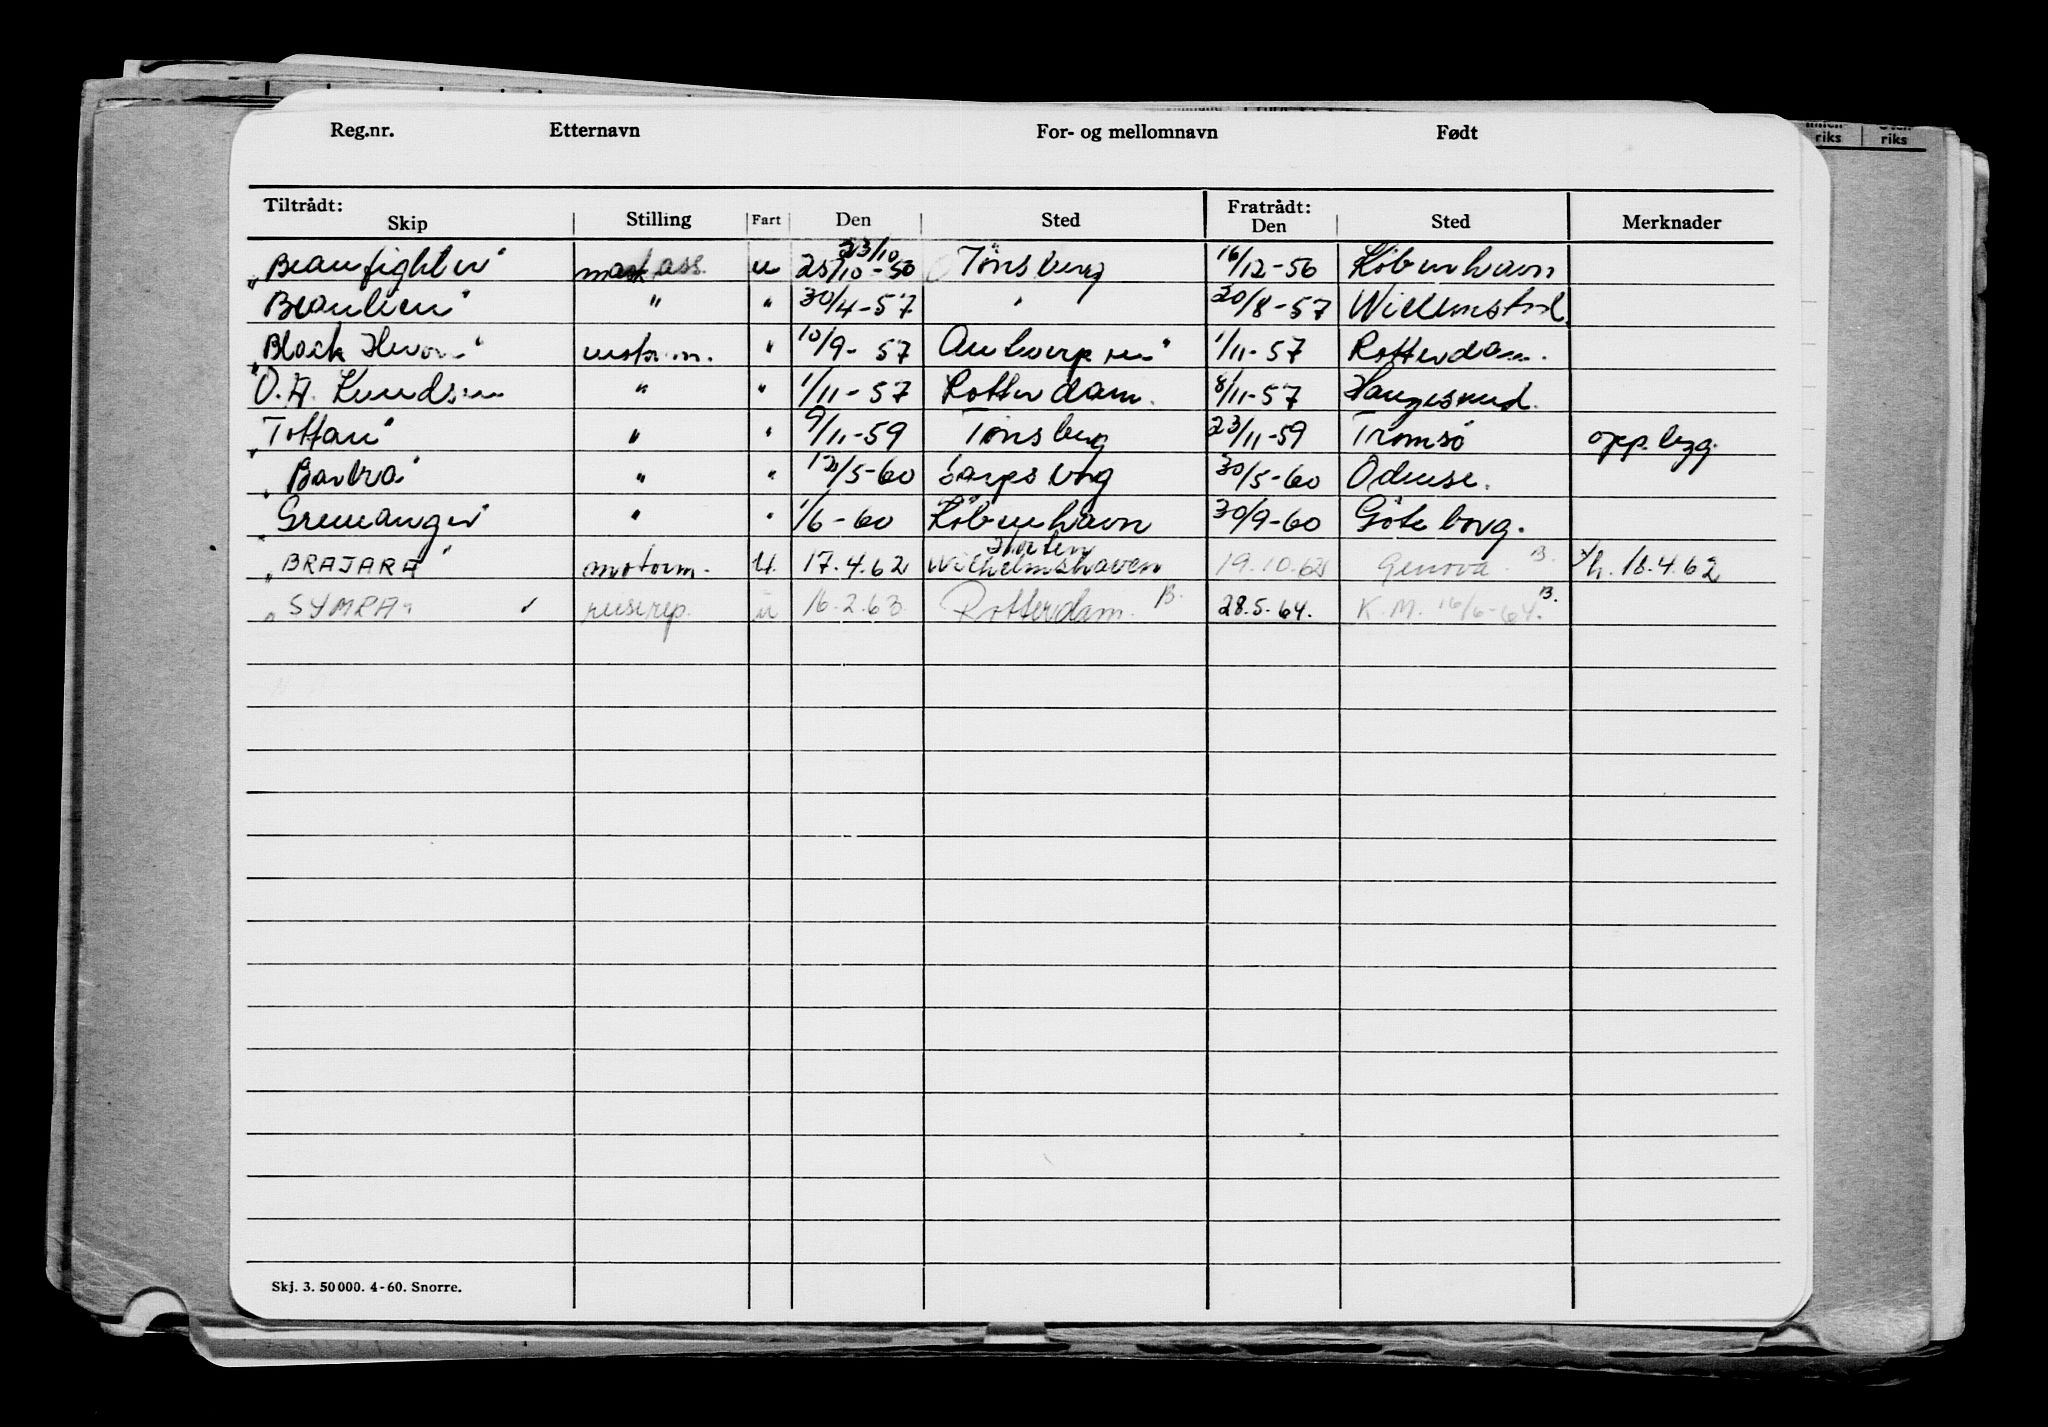 innen riks
Uten riks
Reg.nr. Etternavn For- og mellomnavn Født
Tiltrådt: Fratrådt:
Skip Stilling Fart Den Sted Den Sted Merknader
23/10
"Beaufighter" mask ass. u 25/10-56 Tönsberg 16/12-56 Köbenhavn
"Beaulieu" " " 30/4-57 " 20/8-57 Willemstad.
"Black Heron" motorm. " 10/9-57 Antwerpen" 1/11-57 Rotterdam.
O.A. Knudsen " " 1/11-57 Rotterdam. 8/11-57 Haugesund.
"Tottan" " " 9/11-59 Tönsberg 23/11-59 Tromsö opp.bygg.
"Barbro" " " 12/5-60 Sarpsborg 30/5-60 Odense.
"Gremanger" " " 1/6-60 Köbenhavn 30/9-60 Göteborg.
Horten
"BRAJARA" motorm. U. 17.4.62 Wilhelmshaven 19.10.62 Genova. B. h. 18.4.62
"SYMRA" reserep. u 16.2.63. Rotterdam. B. 28.5.64. K.M. 16/6-64. B.
Skj. 3. 50 000. 4-60. Snorre.